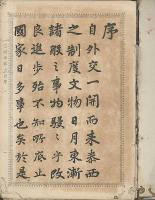 序
自外交一開而來泰西
之制度文物日月東漸
諸般之事物駸々乎改
良進步殆不知所底止
國家日多事也矣於是